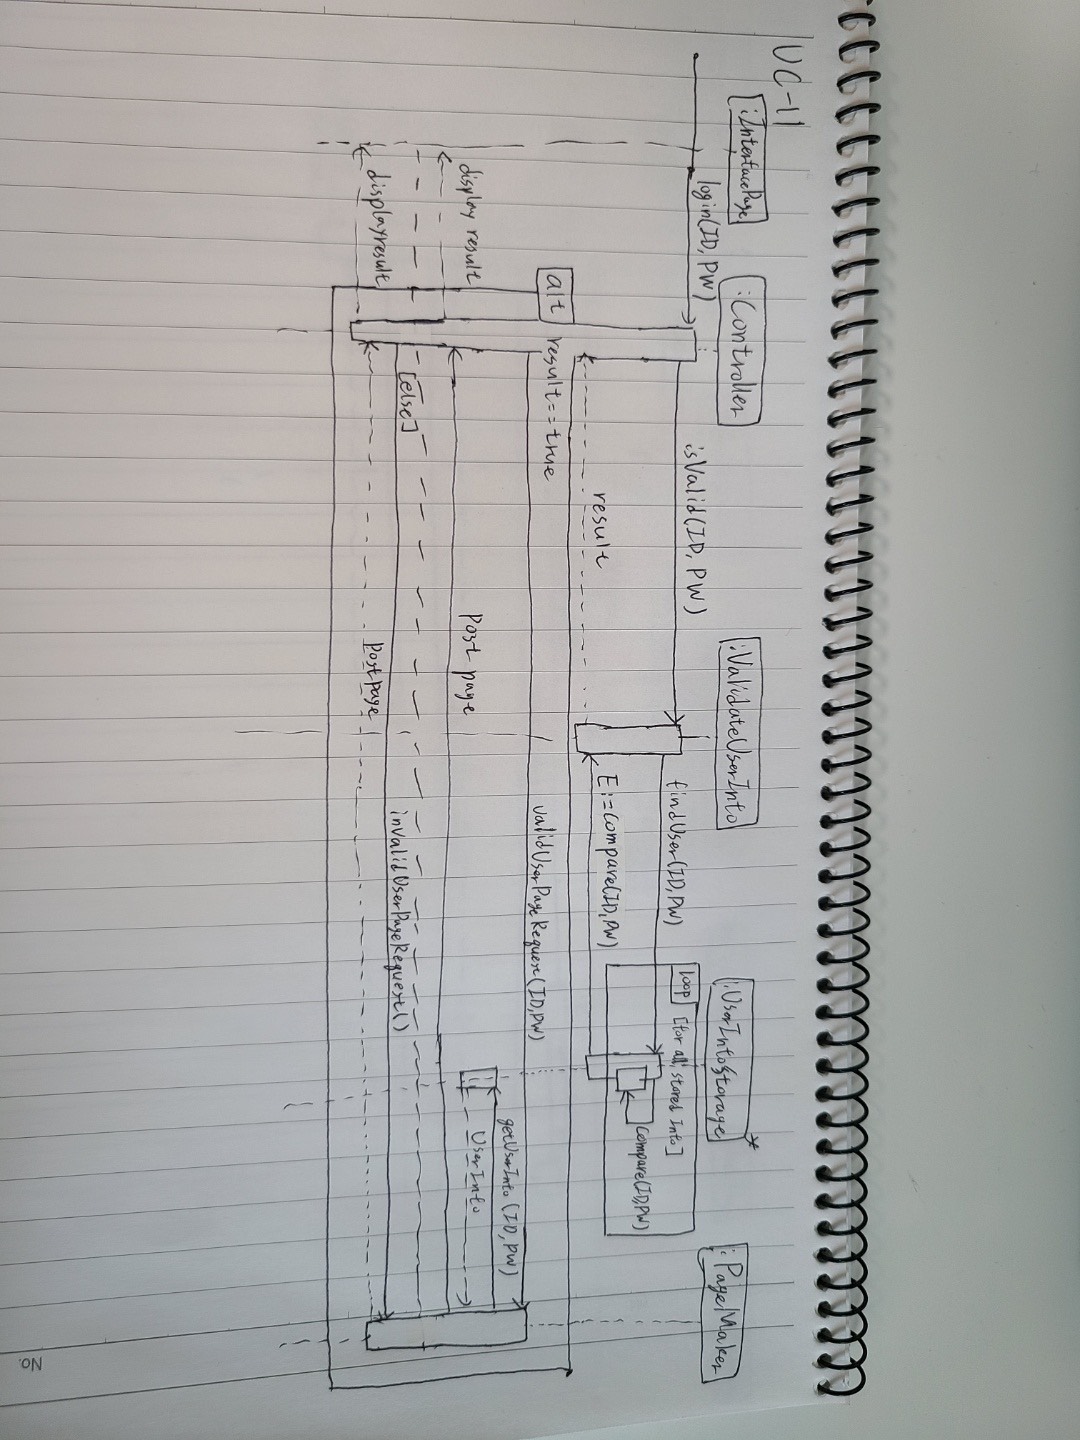 UC-11
:InterfacePage
:Controller
:ValidateUserInfo
:UserInfoStorage
*
:PageMaker
login(ID, PW)
isValid(ID, PW)
findUser(ID, PW)
loop [for all stored Info]
Compare(ID,PW)
E:=Compare(ID,PW)
result
alt result==true
validUserPageRequest(ID,PW)
getUserInfo(ID, PW)
UserInfo
Post page
display result
[else]
invalidUserPageRequest()
Post page
display result
No.